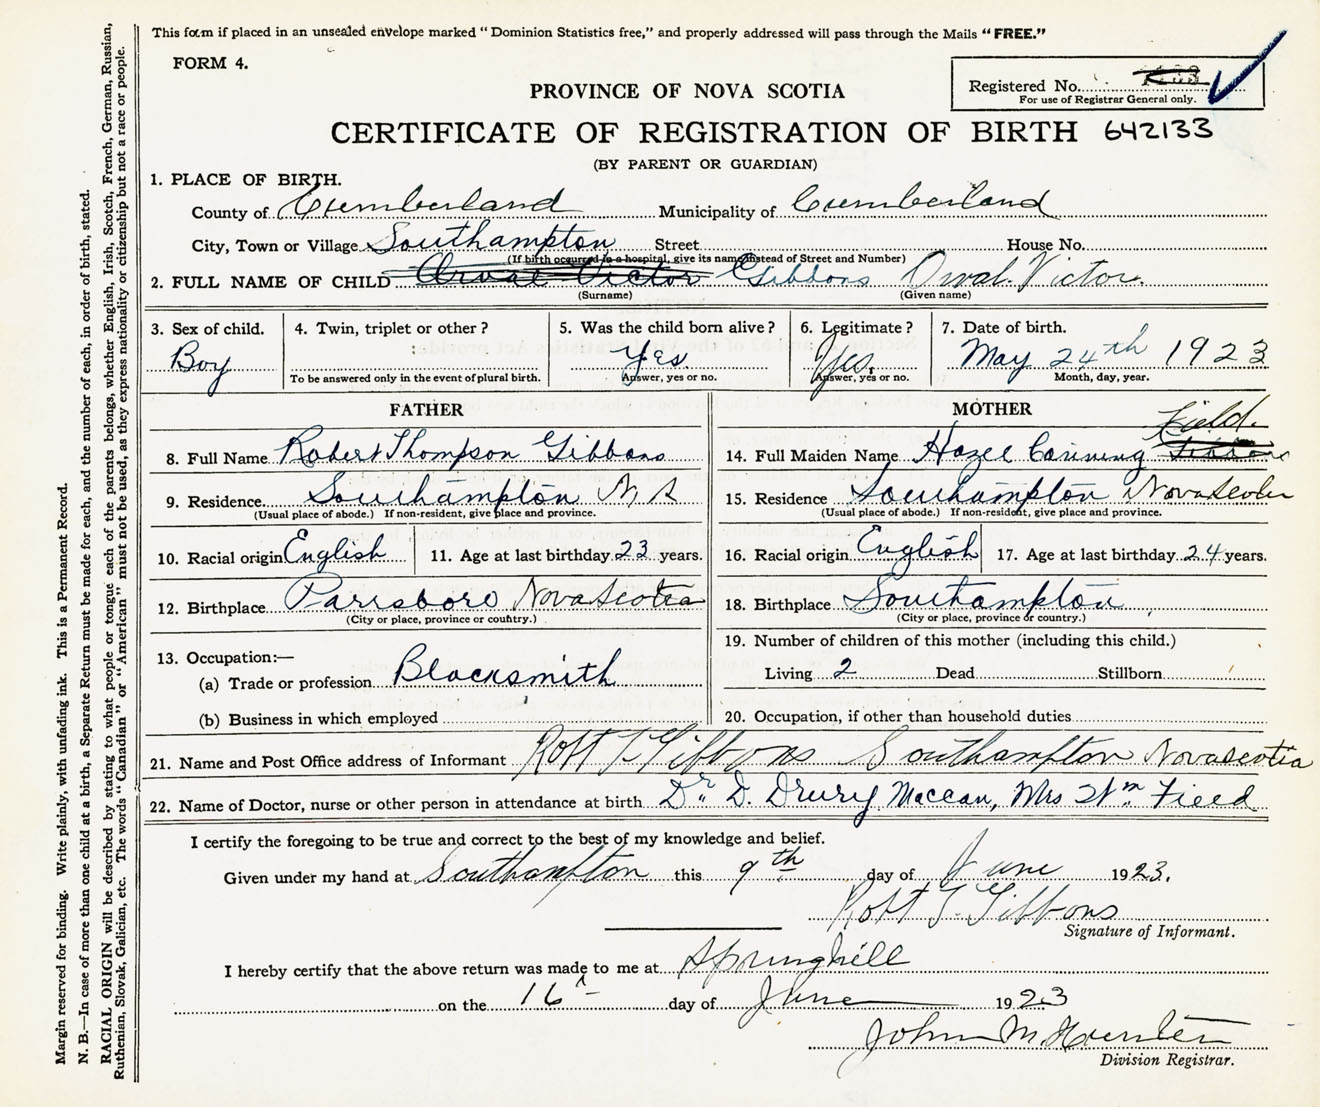 This form if placed in an unsealed envelope marked "Dominion Statistics free," and properly addressed will pass through the Mails "FREE."
FORM 4.
Registered No.
For use of Registrar General only.
PROVINCE OF NOVA SCOTIA
CERTIFICATE OF REGISTRATION OF BIRTH 642133
(BY PARENT OR GUARDIAN)
1. PLACE OF BIRTH.
County of Cumberland Municipality of Cumberland
City, Town or Village Southampton Street House No.
(If birth occurred in a hospital, give its name instead of Street and Number)
2. FULL NAME OF CHILD Orval Victor Gibbons Orval Victor
(Surname) (Given name)
3. Sex of child. 4. Twin, triplet or other? 5. Was the child born alive? 6. Legitimate? 7. Date of birth.
Boy Yes. Yes. May 24th 1923
To be answered only in the event of plural birth. Answer, yes or no. Answer, yes or no. Month, day, year.
FATHER
8. Full Name Robert Thompson Gibbons
9. Residence Southampton N S
(Usual place of abode.) If non-resident, give place and province.
10. Racial origin English 11. Age at last birthday 23 years.
12. Birthplace Parrsboro Nova Scotia
(City or place, province or country.)
13. Occupation:—
(a) Trade or profession Blacksmith
(b) Business in which employed
MOTHER
Field.
14. Full Maiden Name Hazel Corining Gibbons
15. Residence Southampton Nova Scotia
(Usual place of abode.) If non-resident, give place and province.
16. Racial origin English 17. Age at last birthday 24 years.
18. Birthplace Southampton
(City or place, province or country.)
19. Number of children of this mother (including this child.)
Living 2 Dead Stillborn
20. Occupation, if other than household duties
21. Name and Post Office address of Informant Robt T Gibbons Southampton Nova Scotia
22. Name of Doctor, nurse or other person in attendance at birth Dr. D. Drury Maccan, Mrs Wm Field
I certify the foregoing to be true and correct to the best of my knowledge and belief.
Given under my hand at Southampton this 9th day of June 1923.
Robt T. Gibbons
Signature of Informant.
I hereby certify that the above return was made to me at Springhill
on the 16 day of June 1923
John M.
Division Registrar.
Margin reserved for binding. Write plainly, with unfading ink. This is a Permanent Record.
N. B.—In case of more than one child at a birth, a Separate Return must be made for each, and the number of each, in order of birth, stated.
RACIAL ORIGIN will be described by stating to what people or tongue each of the parents belongs, whether English, Irish, Scotch, French, German, Russian,
Ruthenian, Slovak, Galician, etc. The words "Canadian" or "American" must not be used, as they express nationality or citizenship but not a race or people.